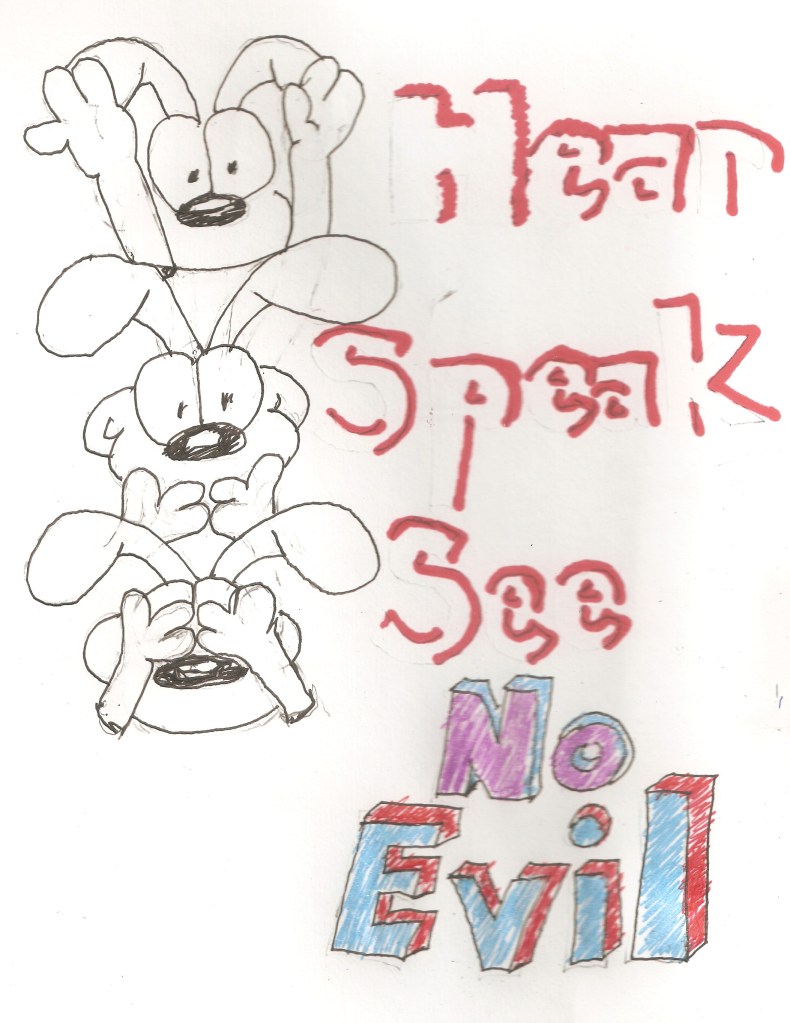 Hear
Speak
See
No
Evil